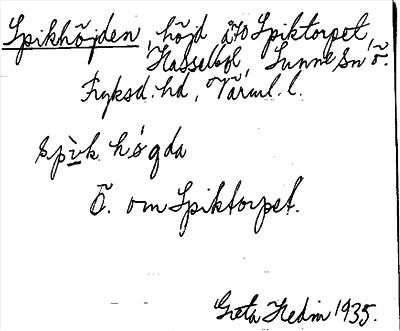 Spikhöjden, höjd åt ö Spiktorpet,
Hasselbol, Sunne sn ö.
Fryksd. hd, Värml. l.
spik högda
Ö. om Spiktorpet.
Greta Hedin 1935.